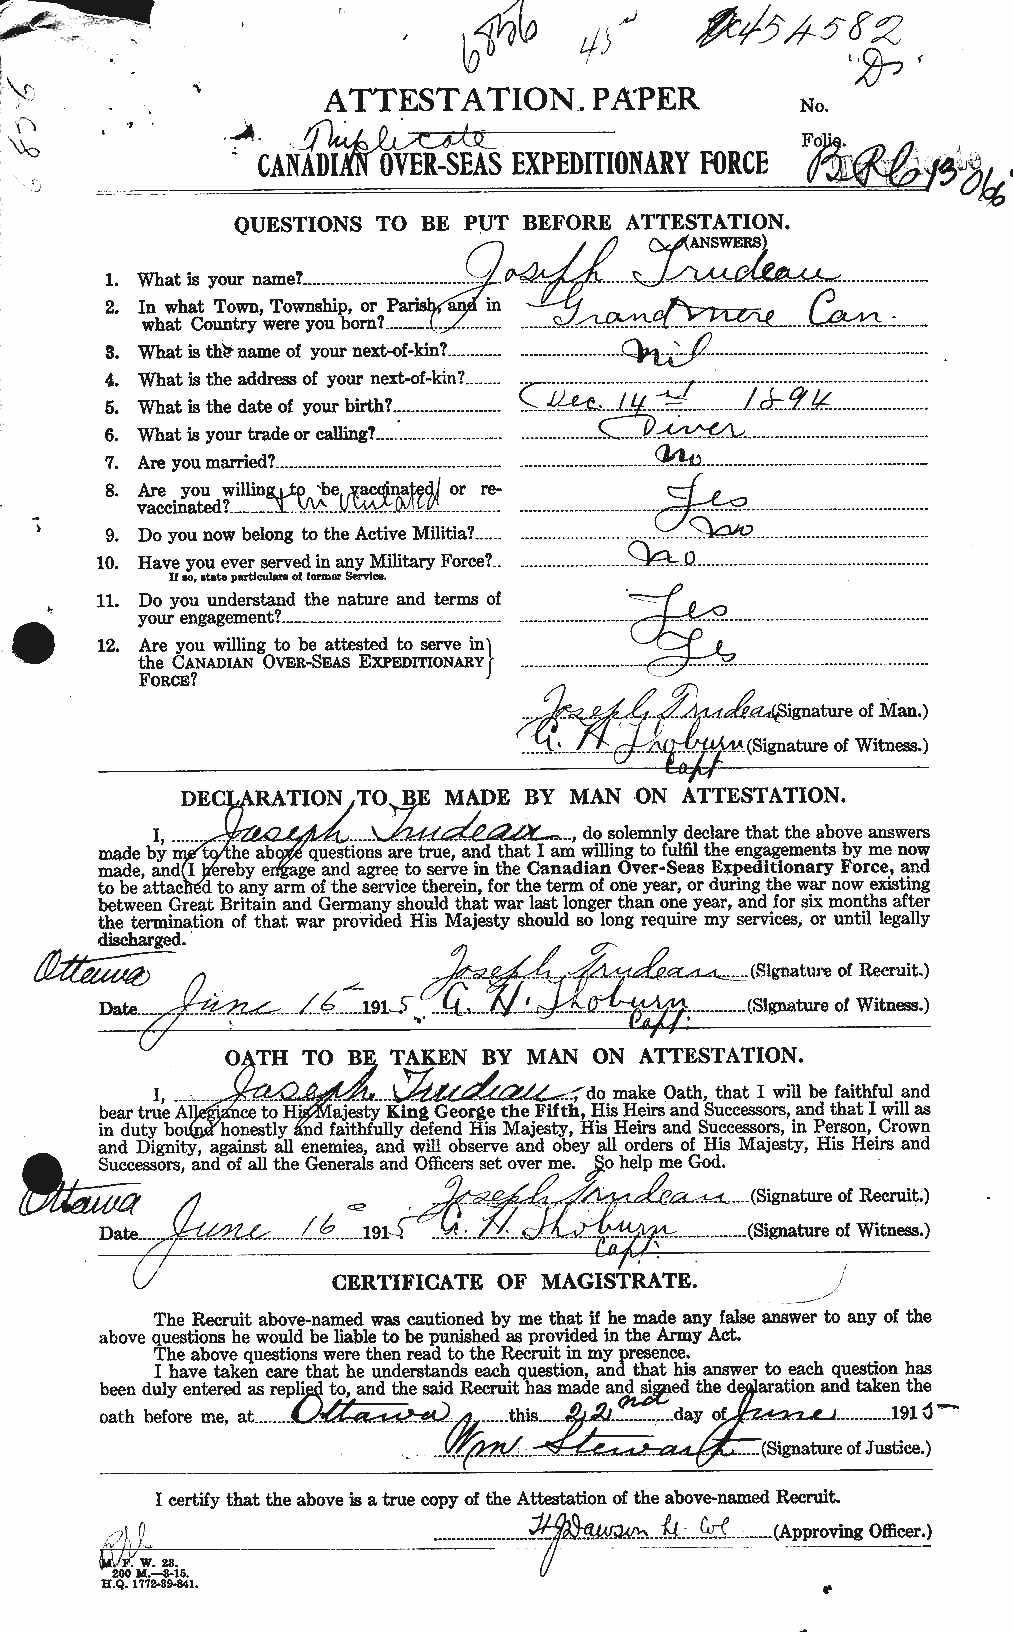 6856 45 454582
"D"
ATTESTATION PAPER
No.
Triplicate
Folio.
CANADIAN OVER-SEAS EXPEDITIONARY FORCE
QUESTIONS TO BE PUT BEFORE ATTESTATION.
(ANSWERS)
1. What is your name? Joseph Trudeau
2. In what Town, Township, or Parish, and in
what Country were you born? Grand mere Can.
3. What is the name of your next-of-kin? nil
4. What is the address of your next-of-kin?
5. What is the date of your birth? Dec. 14th 1894
6. What is your trade or calling? Diver
7. Are you married? No
8. Are you willing to be vaccinated or re-
vaccinated? & Inoculated Yes
9. Do you now belong to the Active Militia? No
10. Have you ever served in any Military Force? No
If so, state particulars of former Service.
11. Do you understand the nature and terms of
your engagement? Yes
12. Are you willing to be attested to serve in
the CANADIAN OVER-SEAS EXPEDITIONARY Yes
FORCE?
Joseph Trudeau (Signature of Man.)
G. H. Thoburn (Signature of Witness.)
Capt
DECLARATION TO BE MADE BY MAN ON ATTESTATION.
I, Joseph Trudeau, do solemnly declare that the above answers
made by me to the above questions are true, and that I am willing to fulfil the engagements by me now
made, and I hereby engage and agree to serve in the Canadian Over-Seas Expeditionary Force, and
to be attached to any arm of the service therein, for the term of one year, or during the war now existing
between Great Britain and Germany should that war last longer than one year, and for six months after
the termination of that war provided His Majesty should so long require my services, or until legally
discharged.
Ottawa Joseph Trudeau (Signature of Recruit.)
Date June 16 1915 G. H. Thoburn (Signature of Witness.)
Capt.
OATH TO BE TAKEN BY MAN ON ATTESTATION.
I, Joseph Trudeau, do make Oath, that I will be faithful and
bear true Allegiance to His Majesty King George the Fifth, His Heirs and Successors, and that I will as
in duty bound honestly and faithfully defend His Majesty, His Heirs and Successors, in Person, Crown
and Dignity, against all enemies, and will observe and obey all orders of His Majesty, His Heirs and
Successors, and of all the Generals and Officers set over me. So help me God.
Ottawa Joseph Trudeau (Signature of Recruit.)
Date June 16 1915 G. H. Thoburn (Signature of Witness.)
Capt.
CERTIFICATE OF MAGISTRATE.
The Recruit above-named was cautioned by me that if he made any false answer to any of the
above questions he would be liable to be punished as provided in the Army Act.
The above questions were then read to the Recruit in my presence.
I have taken care that he understands each question, and that his answer to each question has
been duly entered as replied to, and the said Recruit has made and signed the declaration and taken the
oath before me, at Ottawa this 22nd day of June 1915
Wm Stewart (Signature of Justice.)
I certify that the above is a true copy of the Attestation of the above-named Recruit.
Dawson Lt Col (Approving Officer.)
M. F. W. 23.
200 M.—3-15.
H.Q. 1772-39-841.